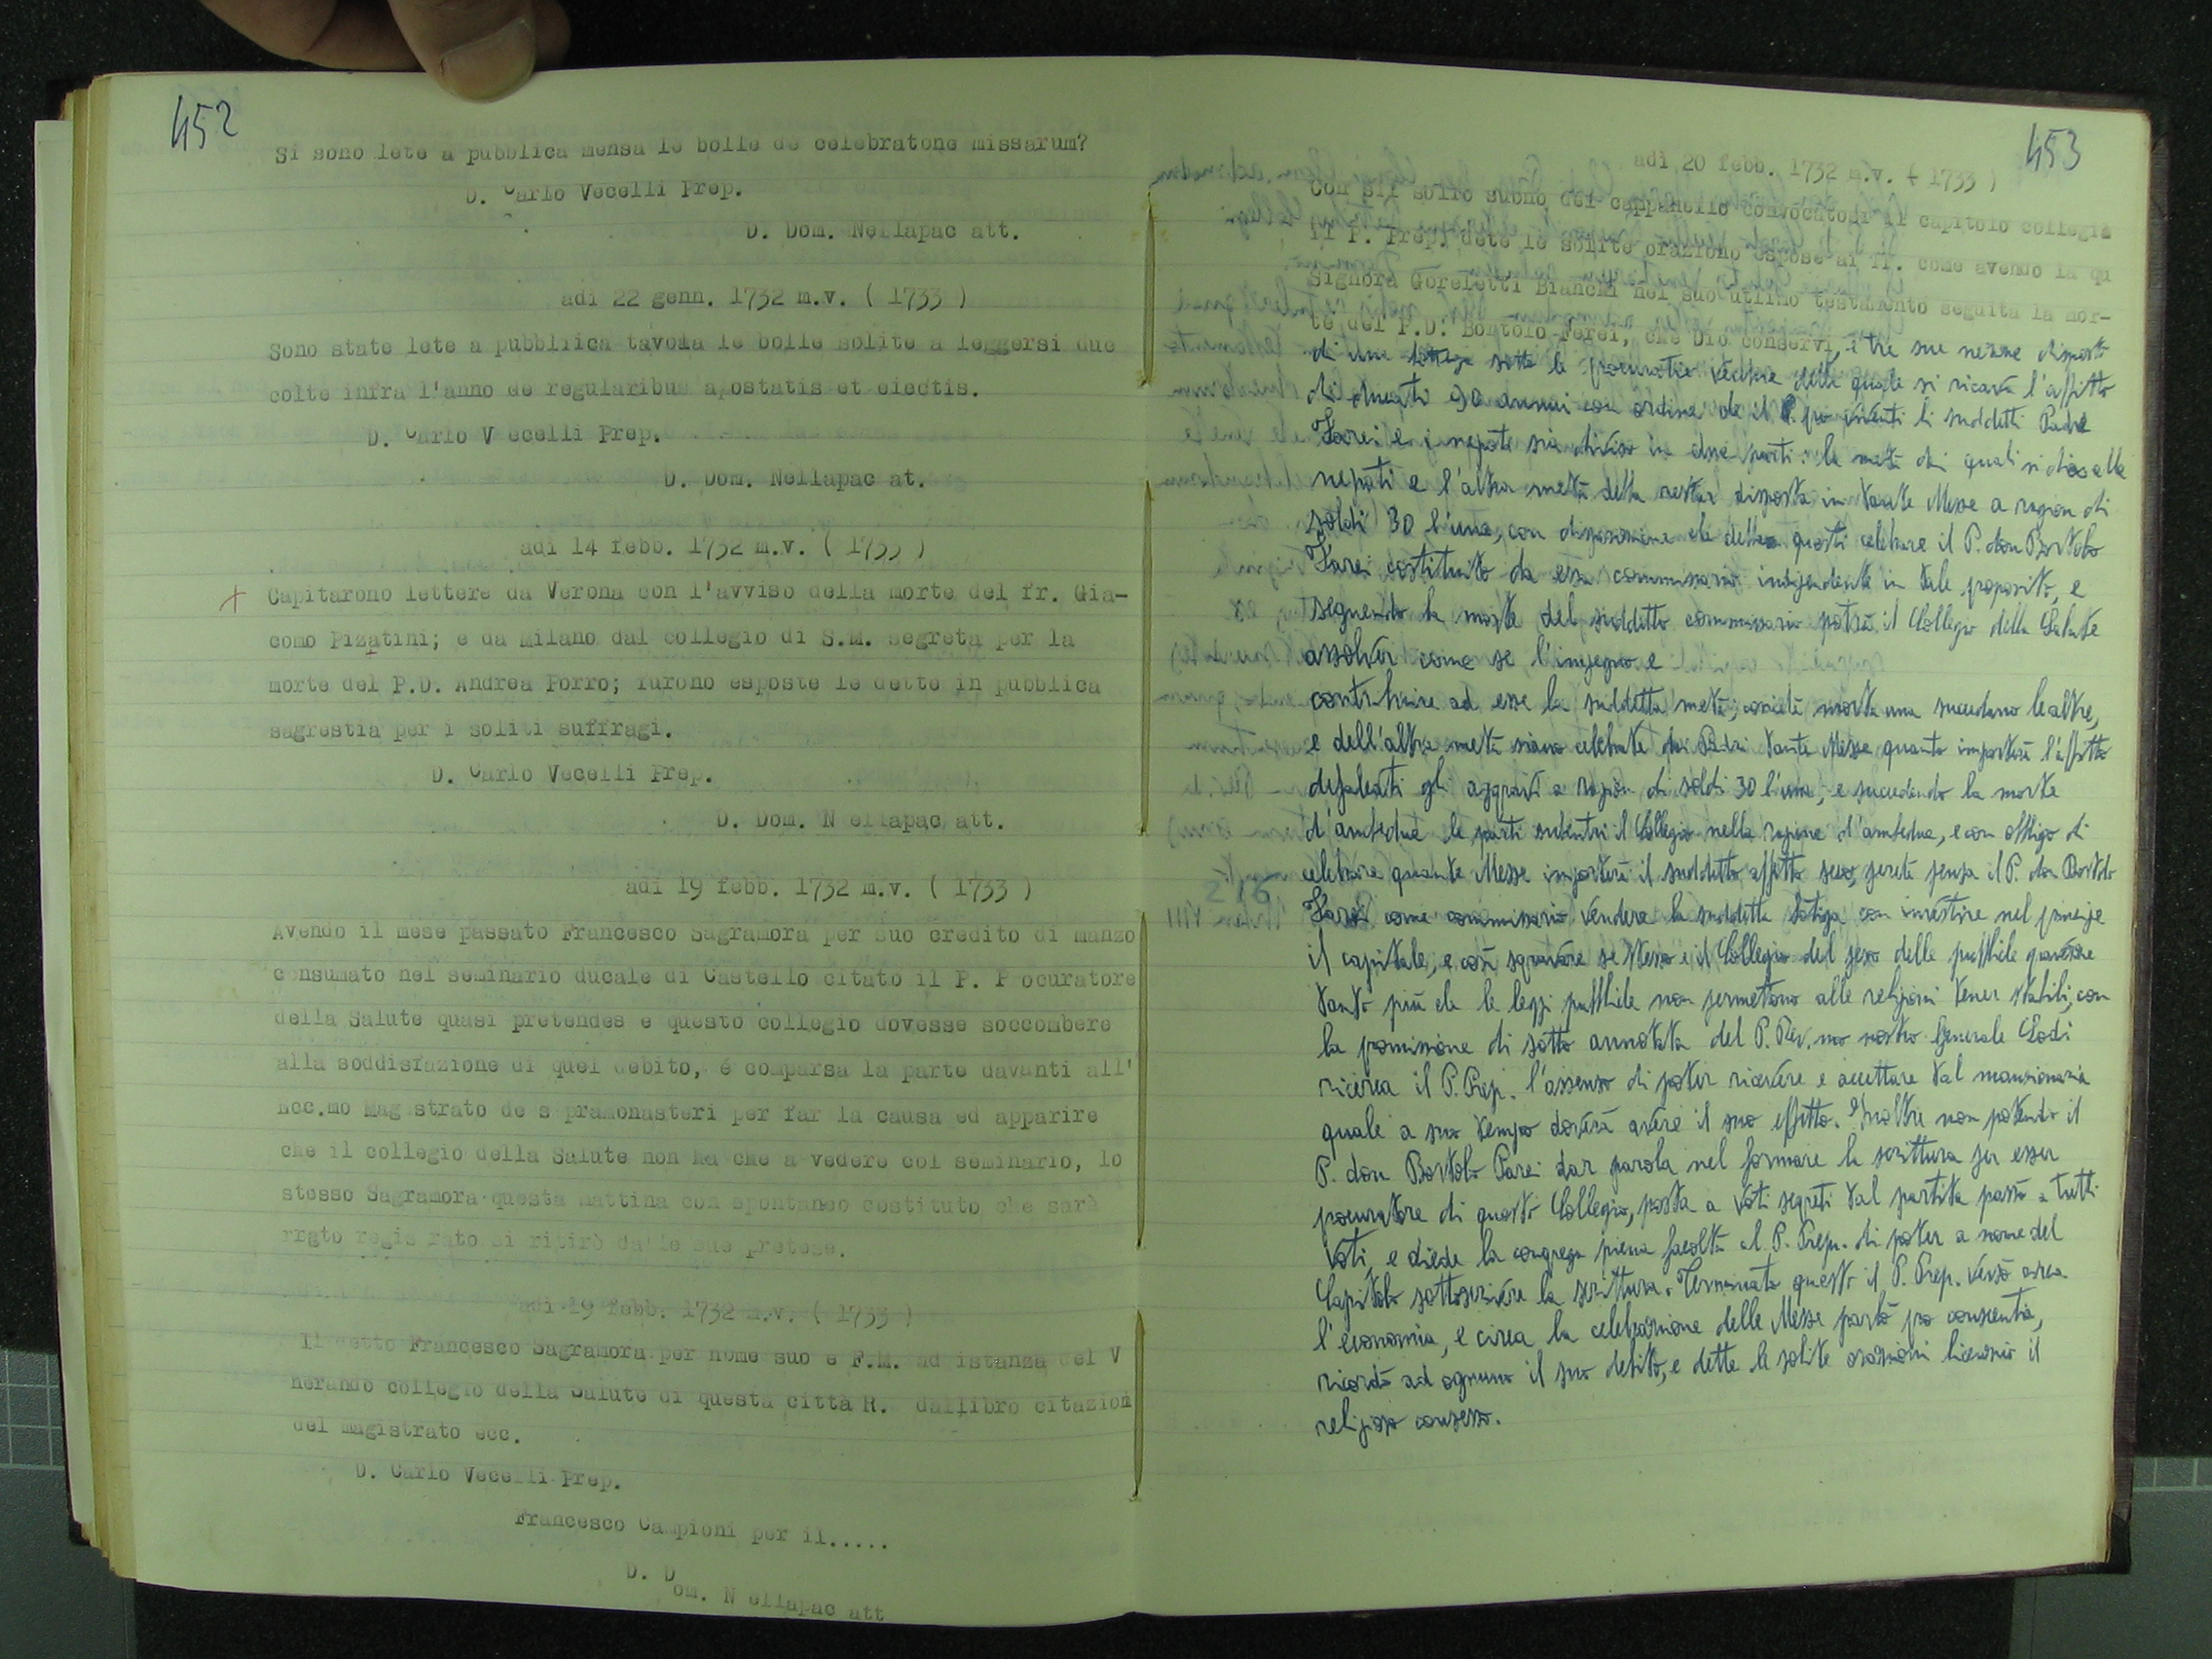 452
Si sono lete a pubblica mensa le bolle de celebratone missarum?
D. Carlo Vecelli Prep.
D. Dom. Nellapac att.
adi 22 genn. 1732 m.v. ( 1733 )
Sono state lete a pubblixca tavola le bolle solite a leggersi due
colte infra l'anno de regularibus apostatis et eiectis.
D. Carlo V ecelli Prep.
D. Dom. Nellapac at.
adi 14 febb. 1732 m.v. ( 1733 )
Capitarono lettere da Verona con l'avviso della morte del fr. Gia-
como Pizatini; e da Milano dal collegio di S.M. segreta per la
morte del P.D. Andrea Porro; furono esposte le dette in pubblica
sagrestia per i soliti suffragi.
D. Carlo Vecelli Prep.
D. Dom. N ellapac att.
adi 19 febb. 1732 m.v. ( 1733 )
Avendo il mese passato Francesco Sagramora per suo credito di manzo
consumato nel seminario ducale di Castello citato il P. P ocuratore
della Salute quasi pretendes e questo collegio dovesse soccombere
alla soddisfazione di quel debito, é comparsa la parte davanti all'
Ecc.mo Mag strato de s pramonasteri per far la causa ed apparire
che il collegio della Salute non ha che a vedere col seminario, lo
stesso Sagramora questa mattina con spontaneo costituto che sarà
rrato regis rato si ritirò dalle sue pretese.
adi 19 febb. 1732 m.v. ( 1733 )
Il detto Francesco Sagramora per nome suo e F.M. ad istanza del V
nerando collegio della Salute di questa città R. dallibro citazion
del magistrato ecc.
D. Carlo Vecelli Prep.
Francesco Campioni per il.....
D. Dom. N ellapac att
453
adi 20 febb. 1732 m.v. ( 1733 )
Con il solito suono del campanello convocatosi il capitolo collegia
il P. Prep. dete le solite oraziono espose ai PP. come avendo la qu
Signora Goreletti Bianchi nel suo utlimo testamento seguita la mor-
te del P.D. Bortolo Ferei, che Dio conservi, e tre sue nezze disposto
di una bottega sotto le procuratie vecchie della quale si ricava l'affitto
di ducati 90 annui con ordine che il P. pro viventi li suddetti Padre
e i nepote sia diviso in due parti: la metà dei quali si dia alle
nepoti e l'altra metà della restar disposta in tante Messe a ragion di
soldi 30 l'una, con disposizione che dette questi celebrare il P. don Bortolo
costituito da essa commissario indipendente in tale proposito, e
seguendo la morte del suddetto commissario potrà il Collegio della Salute
assolver come se l'insegno e
contribuire ad esse la suddetta metà; cosicché morta una succedano le altre,
e dell'altra metà siano celebrate dai Padri tante Messe quanto importerà l'affitto
defalcati gli aggravi a ragion di soldi 30 l'una; e succedendo la morte
d'ambedue le parti subentri il Collegio nella ragione d'ambedue, e con obbligo di
celebrare quante Messe importerà il suddetto affitto perché senza il P. don Bortolo
come commissario vendere la suddetta botega con investire nel principe
il capitale, e così sgravare se stesso e il Collegio del peso delle pubbliche gravezze
tanto più che le leggi pubbliche non permettono alle religioni tener stabili; con
la promissione di sotto annotata del P. Rev.mo nostro Generale Lodi
ricerca il P. Prep. l'assenso di poter ricevere e accettare tal mansionaria
quale a suo tempo doverà avere il suo effetto. Inoltre non potendo il
P. don Bortolo Parei dar parola nel formare la scrittura per esser
procuratore di questo Collegio, posta a voti segreti tal partita passò a tutti
voti, e diede la congrega piena facoltà al P. Prep. di poter a nome del
Capitolo sottoscrivere la scrittura. Terminato questo il P. Prep. versò circa
l'economia, e circa la celebrazione delle Messe parlò pro conscentia,
ricordò ad ognuno il suo debito, e dette le solite orazioni licenziò il
religioso consesso.